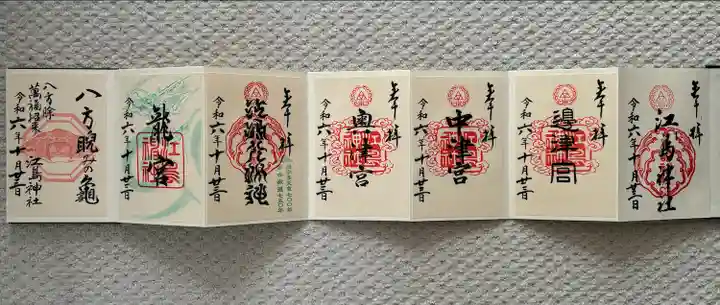 奉拝
江島神社
令和六年十月廿三日
奉拝
邉津宮
令和六年十月廿三日
奉拝
中津宮
令和六年十月廿三日
奉拝
奥津宮
令和六年十月廿三日
奉拝
令和六年十月廿三日
龍宮
令和六年十月廿三日
八方睨みの亀
八方除
萬福招来
江島神社
令和六年十月廿三日